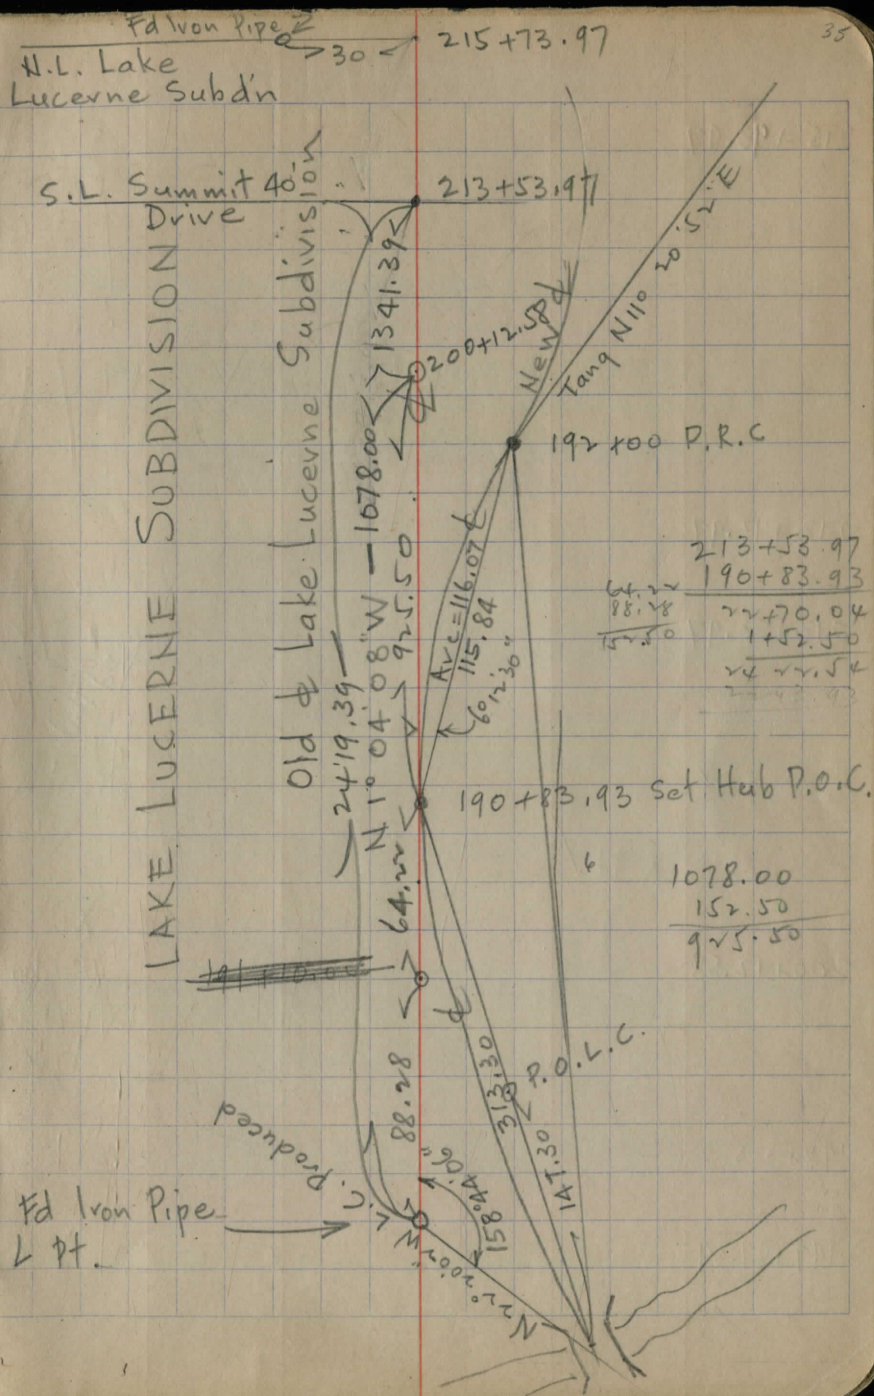 35
Fd Iron Pipe
30
215+73.97
N.L. Lake
Lucerne Subd'n
S.L. Summit 40'
Drive
213+53.97
LAKE LUCERNE SUBDIVISION
Old ℄ Lake Lucerne Subdivision
1341.39
200+12.58
℄
New ℄
Tang N11° 20' 52" E
192+00 P.R.C
1078.00
925.50
N 1° 04' 08" W
2419.39
Arc=116.07
℄
115.84
6° 12' 30"
213+53.97
190+83.93
22+70.04
1+52.50
24 22.54
64.22
88.28
152.50
190+83.93 Set Hub P.O.C.
64.22
6
1078.00
152.50
925.50
℄
P.O.L.C.
313.30
147.30
88.28
L.C. Produced
158° 44' 06"
Fd Iron Pipe
L pt.